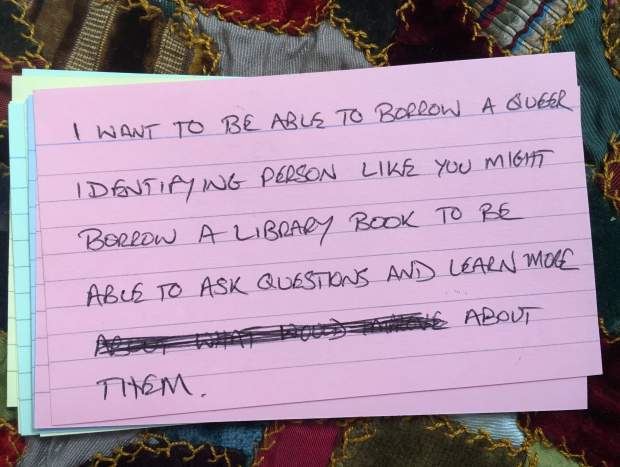 I WANT TO BE ABLE TO BORROW A QUEER
IDENTIFYING PERSON LIKE YOU MIGHT
BORROW A LIBRARY BOOK TO BE
ABLE TO ASK QUESTIONS AND LEARN MORE
ABOUT
THEM.